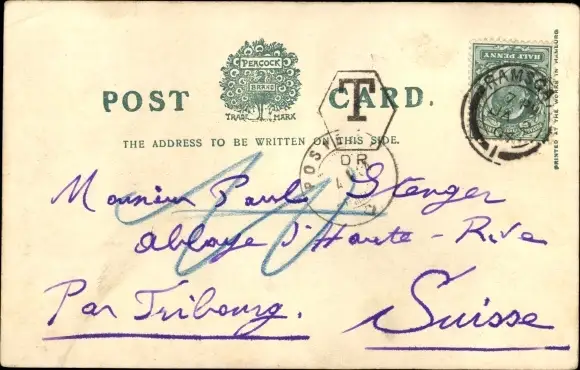 PEACOCK
BRAND
TRADE MARK
POST CARD.
THE ADDRESS TO BE WRITTEN ON THIS SIDE.
T
HALF PENNY
RAMSG
POST
PRINTED AT THE WORKS IN HAMBURG
Monsieur Paul Stenger
Abbaye d'Haute-Rive
Par Fribourg.
Suisse